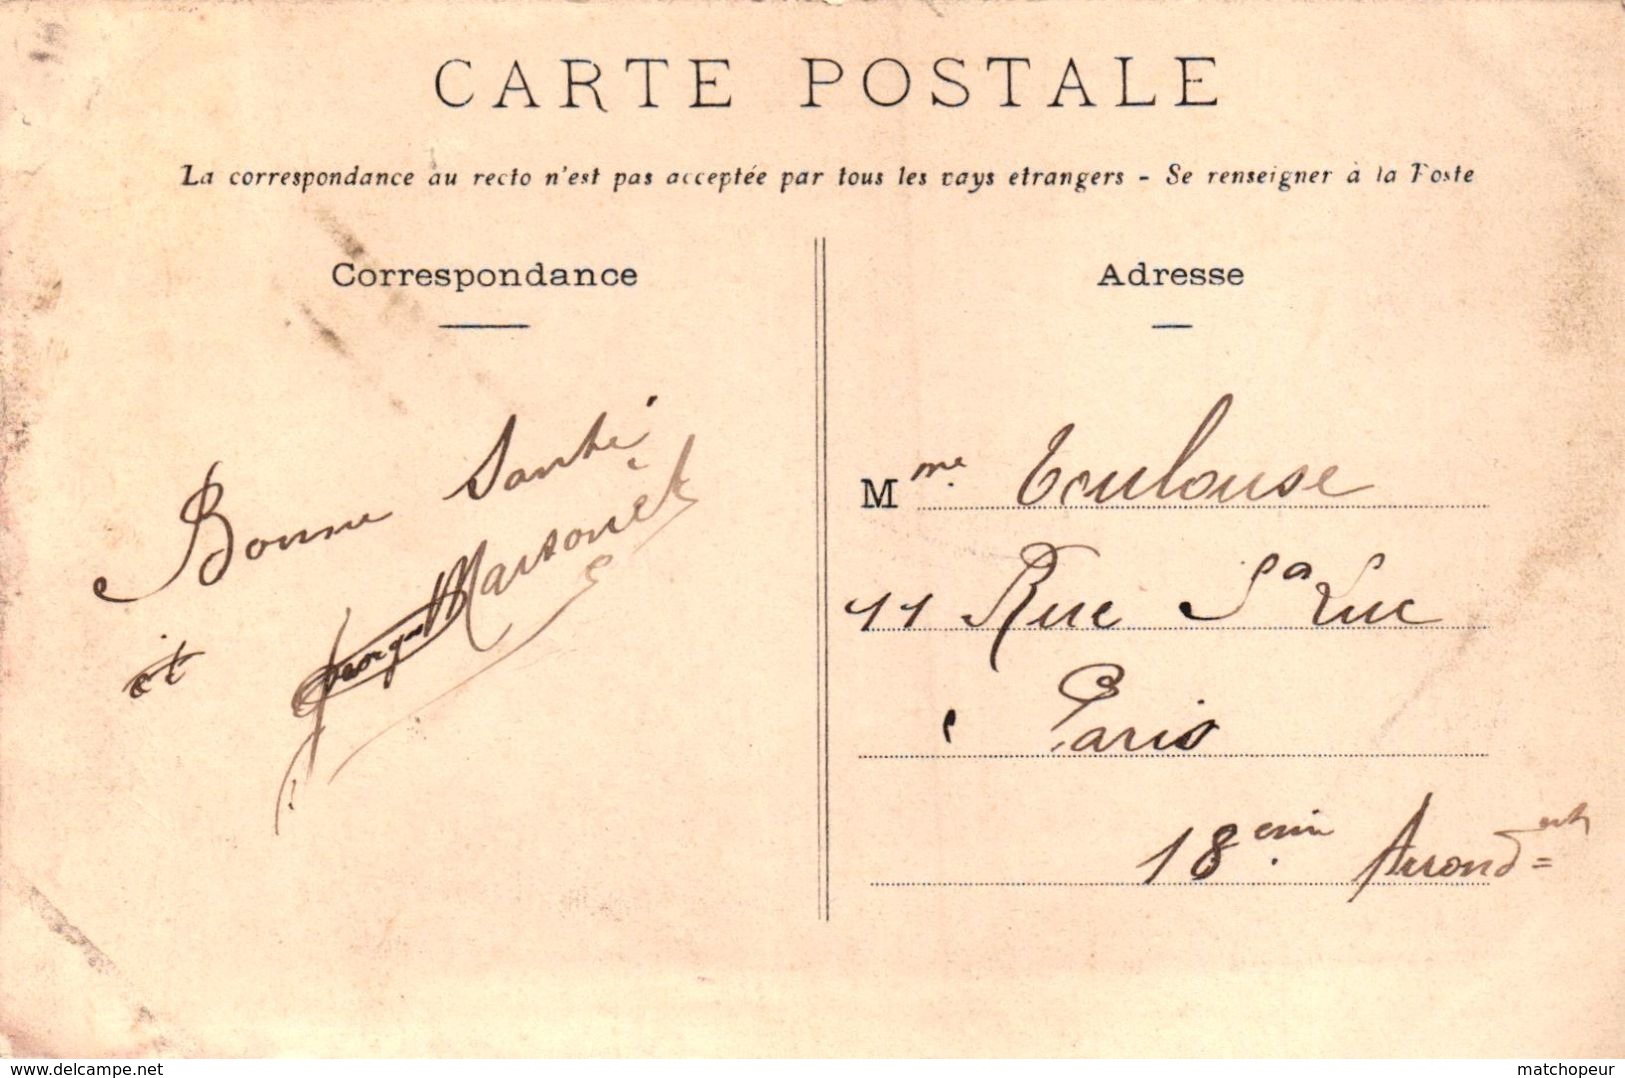 CARTE POSTALE
La correspondance au recto n'est pas acceptée par tous les pays etrangers - Se renseigner à la Poste
Correspondance
Adresse
Bonne Santé
Georges
M me. Toulouse
11 Rue St Luc
Paris
18 eme Arrond
www.delcampe.net
matchopeur